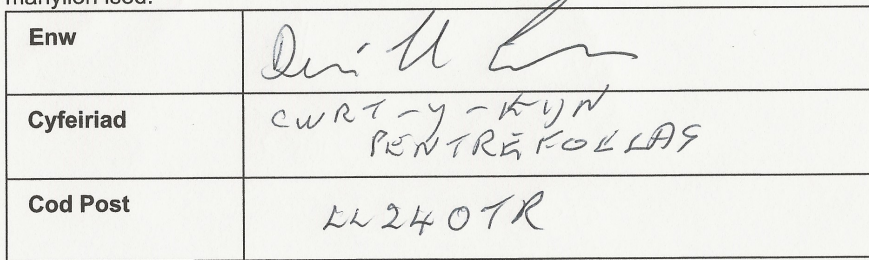 manylion isod.
Enw
Cyfeiriad
CWRT-Y-
PENTREFOELAS
Cod Post
LL24 0TR